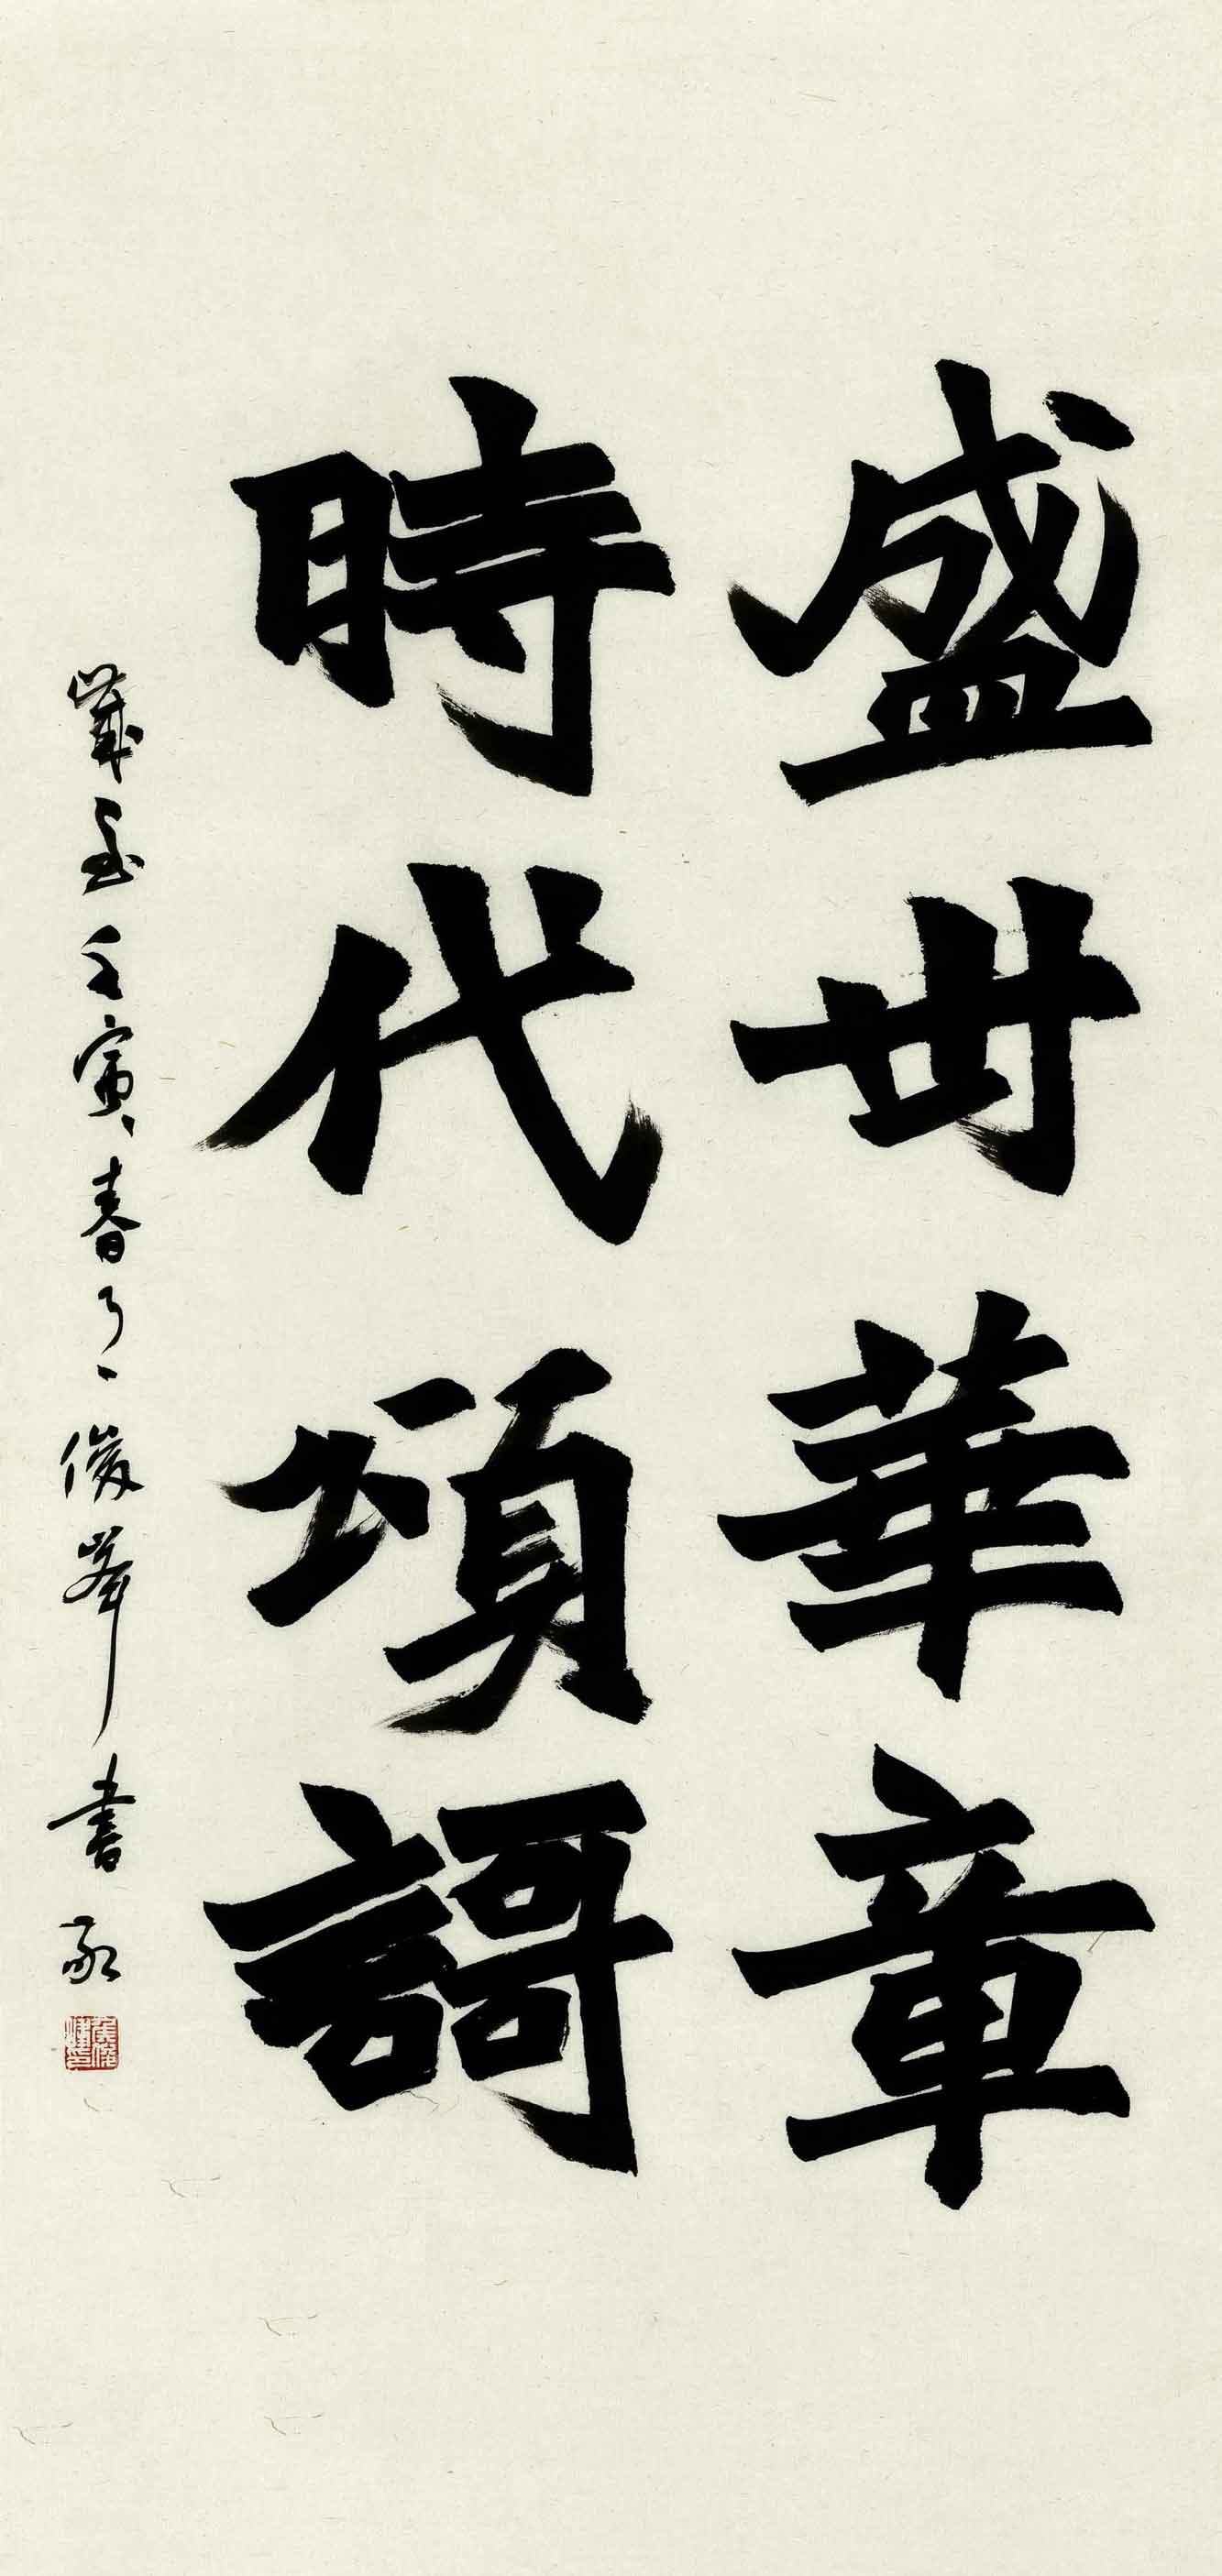 盛世華章
時代頌謌
歲在壬寅春月俊峯書